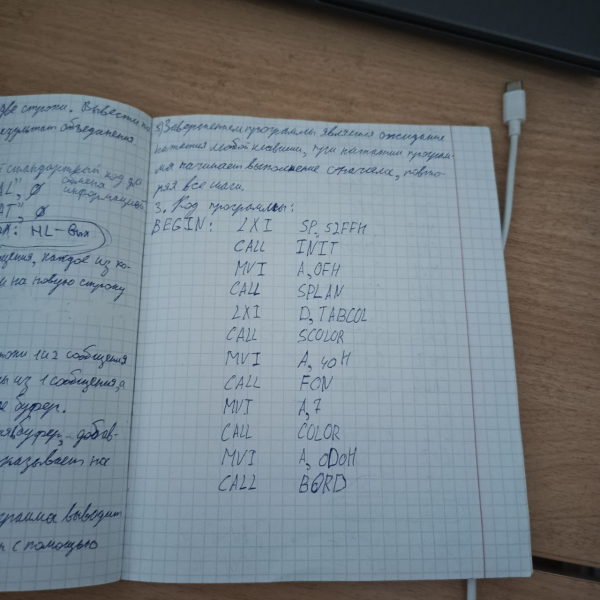 две строки. Вывести на
результат объединения
стандартный код
обмена
информацией
AL", 0
AT", 0
HL-вых
щения, каждое из ко-
и на новую строку
1 и 2 сообщения
из 1 сообщения, а
буфер.
буфер, добав-
указывает на
грамма выводит
с помощью
5) Завершением программы является ожидание
нажатия любой клавиши, при нажатии програм-
ма начинает выполнение сначала, повто-
ряя все шаги.
3. Код программы:
BEGIN: LXI SP, 52FFH
CALL INIT
MVI A, 0FH
CALL SPLAN
LXI D, TABCOL
CALL SCOLOR
MVI A, 40H
CALL FON
MVI A, 7
CALL COLOR
MVI A, 0D0H
CALL BORD